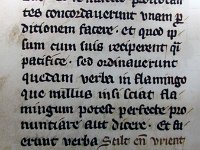 tes concordaverunt vnam ꝑ
ditionem facere. et quod ip
sum cum suis reciperent qͥ
pacifice. sed ordinaverunt
quedam verba in flamingo
que nullus nisi sciat fla
mingum potest perfecte pro
nuntiare aut dicere. Et fu
erunt verba Scilt en̄ vrient